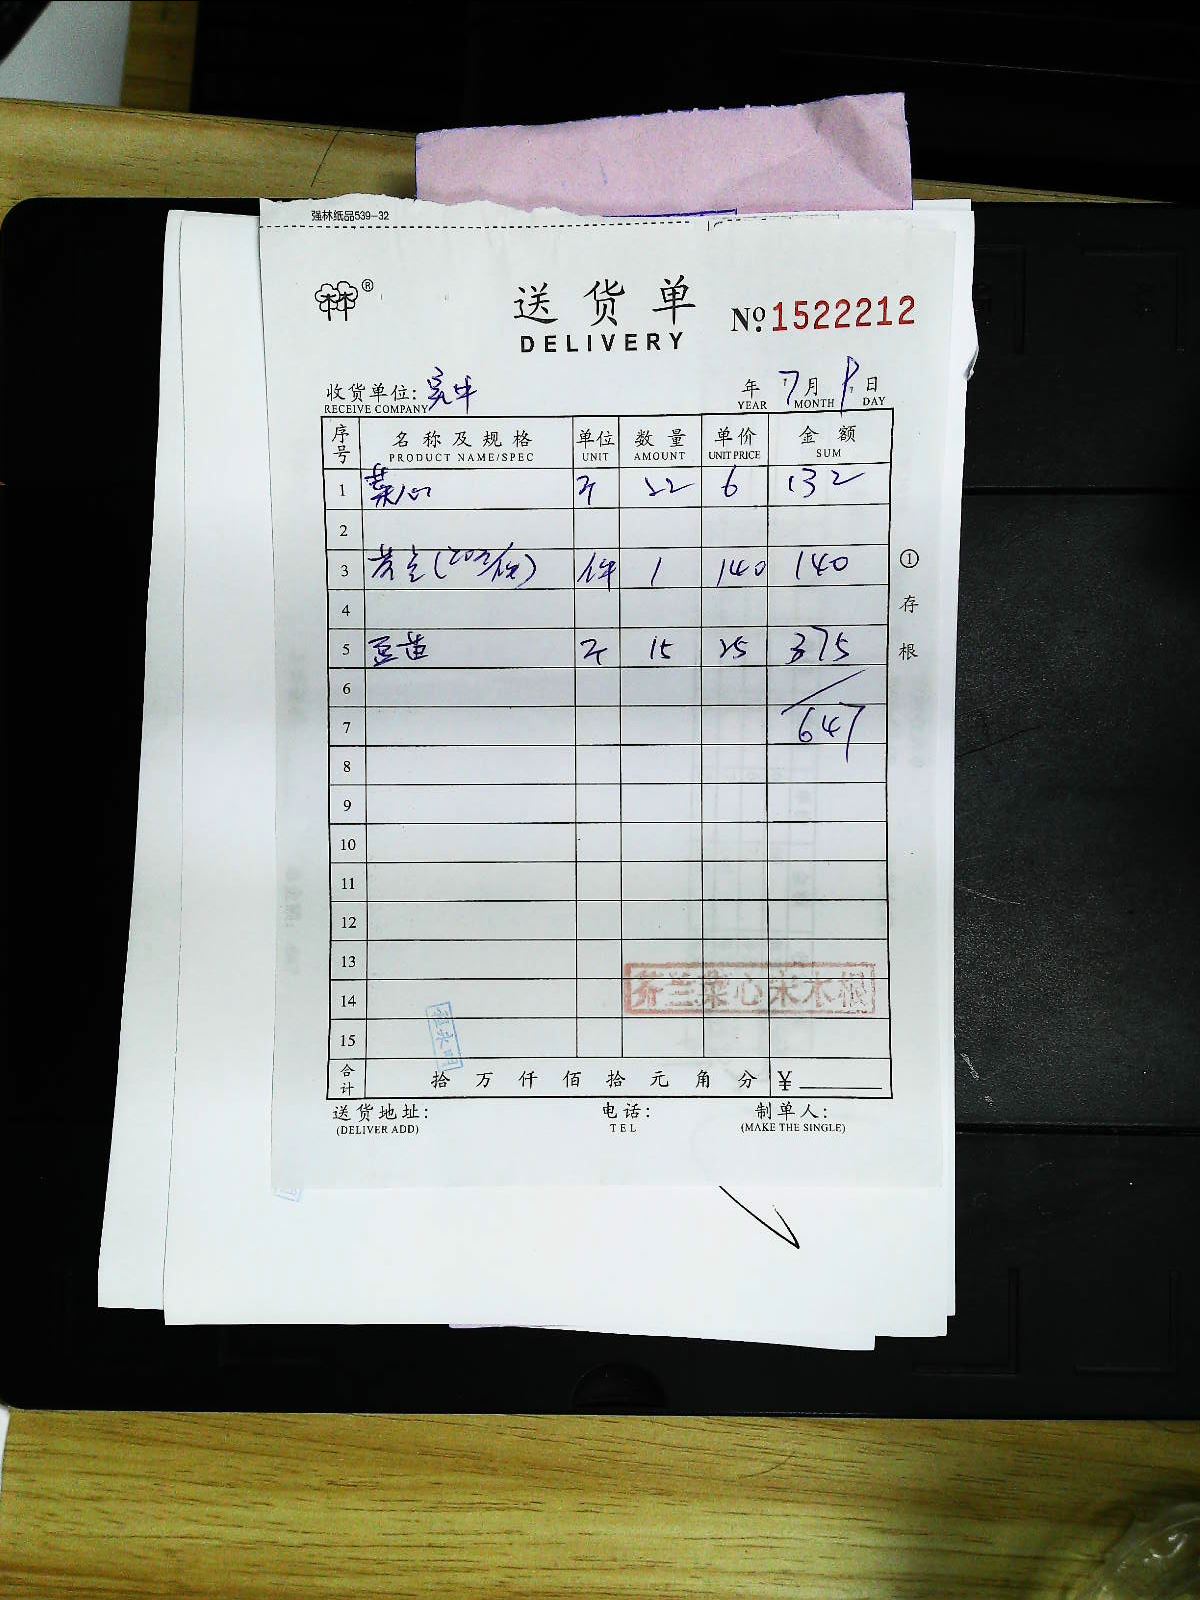 强林纸品539-32
林林®
送货单
DELIVERY
№:1522212
收货单位:
RECEIVE COMPANY
年 7月 日
YEAR MONTH DAY
序号 名称及规格 单位 数量 单价 金额
PRODUCT NAME/SPEC UNIT AMOUNT UNIT PRICE SUM
1 菜心 斤 22 6 132
2
3 件 1 140 140
4
5 豆苗 斤 15 25 375
6
7 647
8
9
10
11
12
13
14
15
芥兰菜心宋木根
合计 拾 万 仟 佰 拾 元 角 分 ¥
送货地址: 电话: 制单人:
(DELIVER ADD) TEL (MAKE THE SINGLE)
①存根